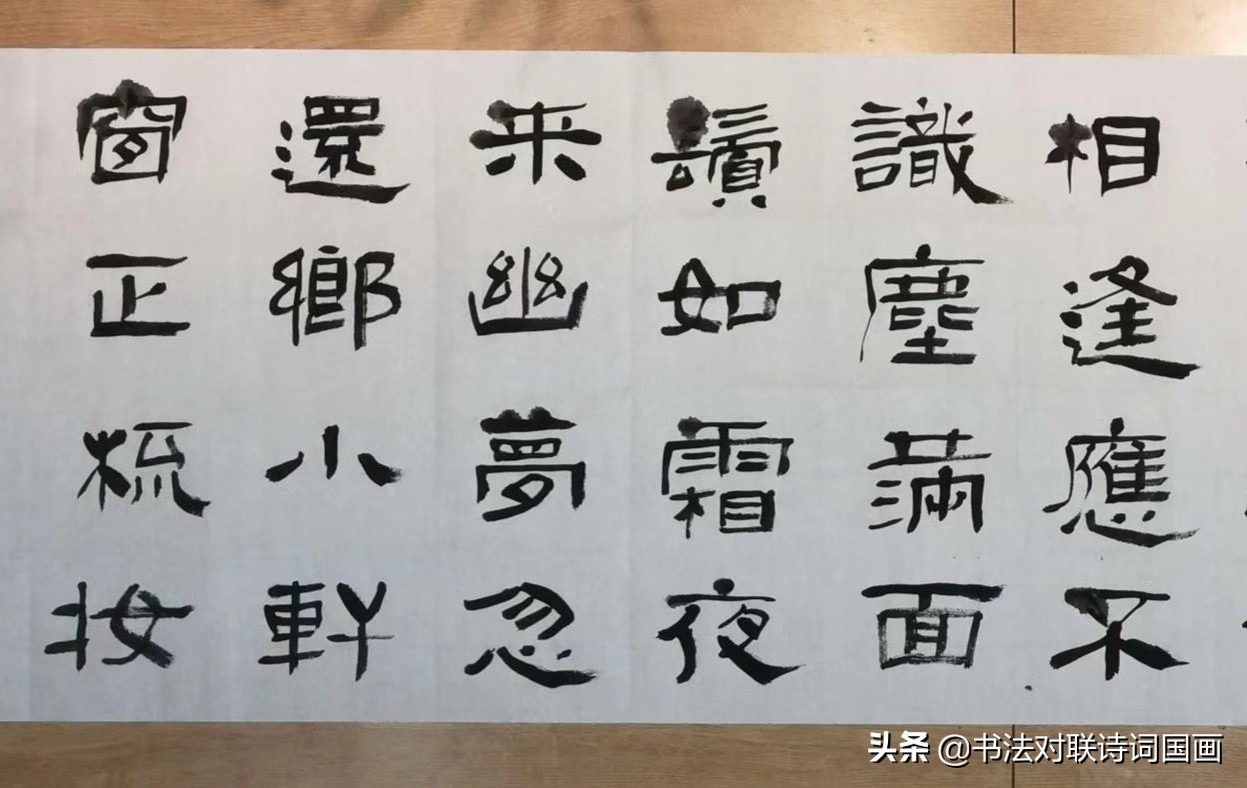 相逢應不
識塵滿面
鬢如霜夜
来幽夢忽
還鄉小軒
窗正梳妝
头条 @书法对联诗词国画